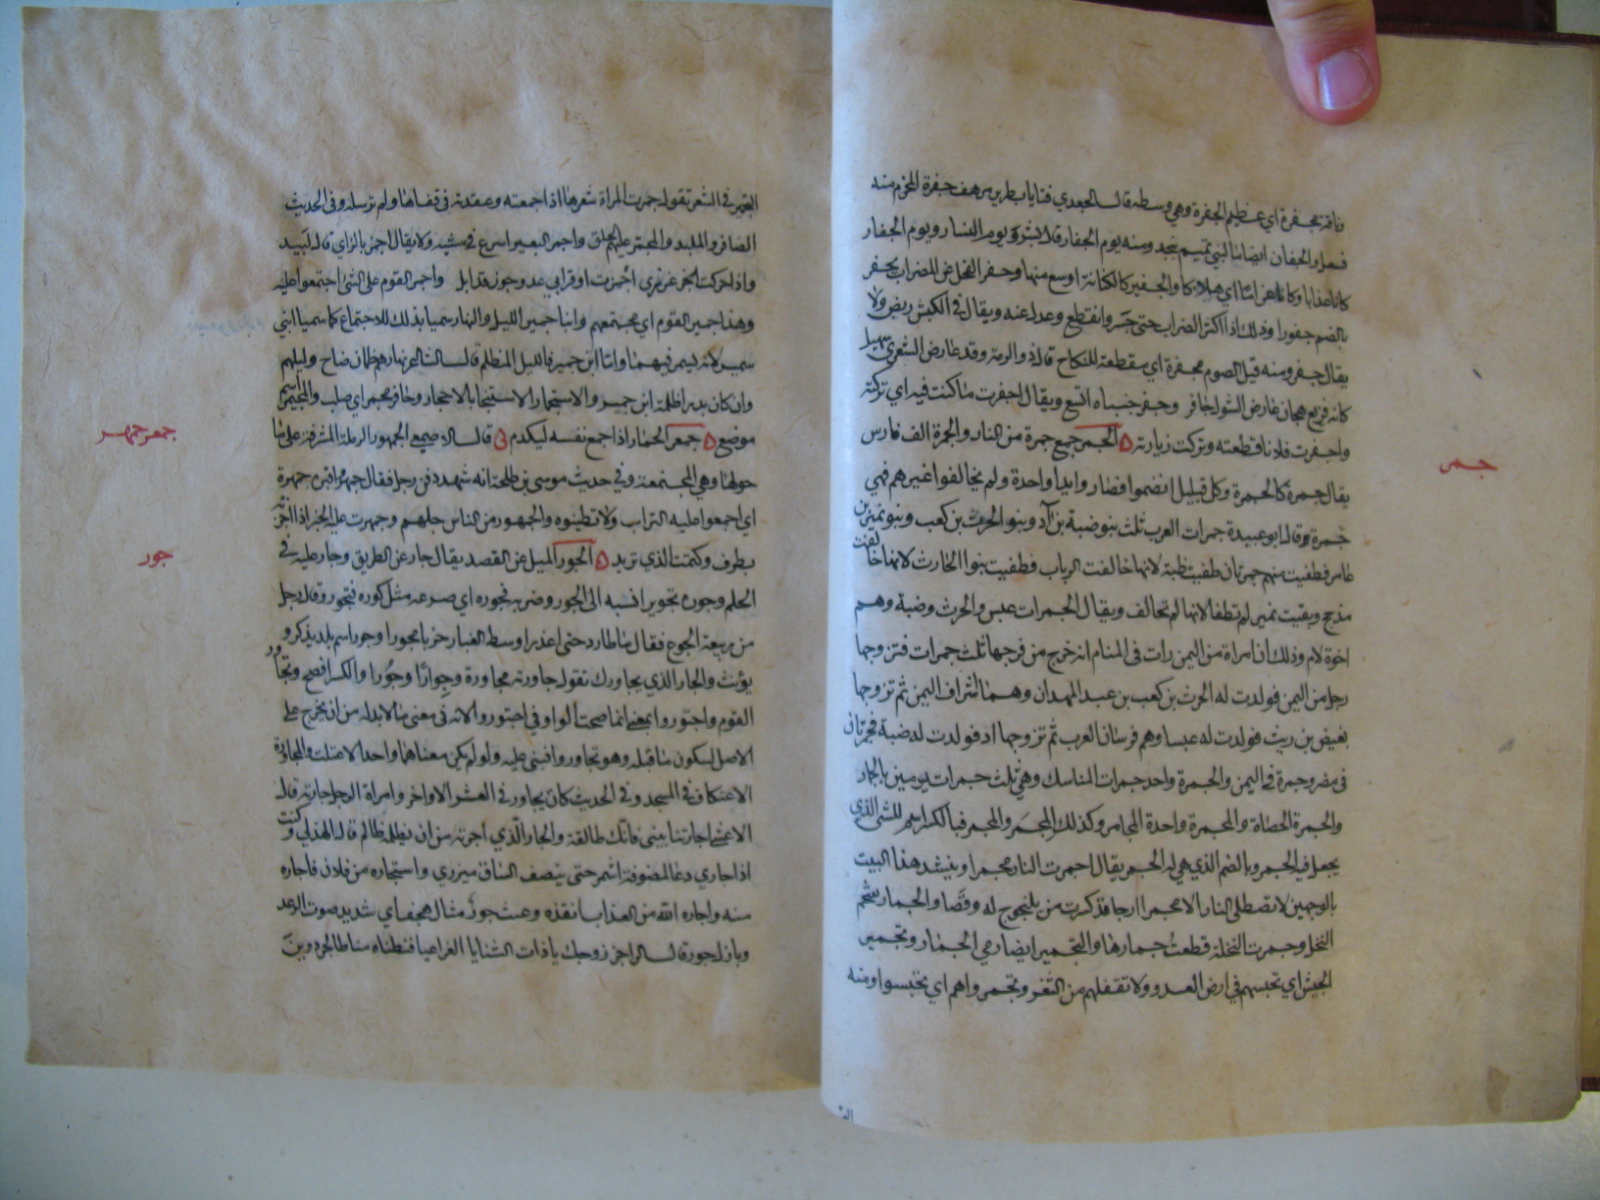 وناقة مجفرة اي عظيم الجفرة وهي وسطه قال الجعدي فتايا بطرير مرهف جفرة المحزم منه
فسعل والجفان ايضا ماء لبني تميم بنجد ومنه يوم الجفار قال بشر ويوم النسار ويوم الجفار
كانا عذابا وكانا غراما اي هلاكا والجفير كالكنانة اوسع منها وجفر الفحل عن الضراب يجفر
بالضم جفورا وذلك اذا اكثر الضراب حتى حسر وانقطع وعدل عنه ويقال في الكبش ربض ولا
يقال جفر ومنه قيل الصوم مجفرة اي مقطعة للنكاح قال ذو الرمة وقد عارض الشعرى سهيل
كانه قريع هجان عارض الشول جافر وجفر جنباه اتسع ويقال اجفرت ما كنت فيه اي تركته
واجفرت فلانا قطعته وتركت زيارته ه الجمر جمع جمرة من النار والجمرة الف فارس
يقال جمرة كالجمرة وكل قبيل انضموا فصاروا يدا واحدة ولم يخالفوا غيرهم فهي
جمرة وقال ابو عبيدة جمرات العرب ثلث بنو ضبة بن اد وبنو الحرث بن كعب وبنو نمير بن
عامر فطفيت منهم جمرتان طفيت ضبة لانها خالفت الرباب وطفيت بنو الحارث لانها خالفت
مذحج وبقيت نمير لم تطفا لانها لم تحالف ويقال الجمرات عبس والحرث وضبة وهم
اخوة لام وذلك ان امراة من اليمن رات في المنام انه خرج من فرجها ثلث جمرات فتزوجها
رجل من اليمن فولدت له الحرث بن كعب بن عبد المدان وهم اشراف اليمن ثم تزوجها
بغيض بن ريث فولدت له عبسا وهم فرسان العرب ثم تزوجها اد فولدت له ضبة فجمرتان
في مضر وجمرة في اليمن والجمرة واحد جمرات المناسك وهي ثلث جمرات يرمين بالجمار
والجمرة الحصاة والمجمرة واحدة المجامر وكذلك المجمر والمجمر فبالكسر اسم للشي الذي
يجعل فيه الجمر وبالضم الذي هي له الجمر يقال اجمرت النار مجمرا وينشد هذا البيت
بالوجهين لا تصطلي النار الا مجمرا ارجا قد كسرت من يلنجوج له وقصا والجمار شحم
النخل وجمرت النخلة قطعت جمارها والتجمير ايضا رمي الجمار وتجمير
الجيش اي تحبسهم في ارض العدو ولا تقفلهم من الثغر وتجمروا هم اي تحبسوا ومنه
جمر
التجمير في الشعر تقول جمرت المراة شعرها اذا جمعته وعقدته في قفاها ولم ترسله وفي الحديث
الضافر والملبد والمجمر عليهم الحلق واجمر البعير اسرع في مشيه ولا يقال اجمز بالزاي قال لبيد
واذا حركت غرزي اجمرت او قرابي عدو جون قد ابل واجمر القوم على الشئ اجتمعوا عليه
وهذا جمير القوم اي مجتمعهم وابنا جمير الليل والنهار سميا بذلك للاجتماع كما سميا ابني
سمير لانه يسمر فيهما واما ابن جمير فالليل المظلم قال الشاعر نهارهم ظمان ضاح وليلهم
وان كان بدرا ظلمة ابن جمير والاستجمار الاستنجا بالاحجار وحافر مجمر اي صلب والمجيمر اسم
موضع ه جمعر الحمار اذا جمع نفسه ليكدم ه قال الاصمعي الجمهور الرملة المشرفة على ما
حولها وهي المجتمعة وفي حديث موسى بن طلحة انه شهد دفن رجل فقال جمهروا قبره جمهرة
اي اجمعوا عليه التراب ولا تطينوه والجمهور من الناس جلهم وجمهرت عليه الخبر اذا اخبرته
بطرف وكتمت الذي تريد ه الجور الميل عن القصد يقال جار عن الطريق وجار عليه في
الحكم وجوره تجويرا نسبه الى الجور وضربه فجوره اي صرعه مثل كوره فتجور وقال رجل
من ربيعة الجوع فقال ما طارد حتى اعذرا وسط الغبار خربا مجورا وجور اسم بلد يذكر و
يؤنث والجار الذي يجاورك تقول جاورته مجاورة وجوارا وجوارا والكسر افصح وتجاور
القوم واجتوروا بمعنى انما صحت الواو في اجتوروا لانه في معنى ما لا بد له من ان يخرج على
الاصل لسكون ما قبله وهو تجاوروا فبني عليه ولو لم يكن معناهما واحدا لاعتلت والمجاورة
الاعتكاف في المسجد وفي الحديث كان يجاور في العشر الاواخر وامراة الرجل جارته قال
الاعشى اجارتنا بيني فانك طالقة والجار الذي اجرته من ان يظلمه ظالم قال الهذلي وكنت
اذا جاري دعا لمضوفة اشمر حتى ينصف الساق ميزري واستجاره من فلان فاجاره
منه واجاره الله من العذاب انقذه وغيث جور مثال هجف اي شديد صوت الرعد
وبازل جور قال الراجز زوجك يا ذات الثنايا الغر اعيا فنطناه مناط الجر دوين
جمعر جمهر
جور